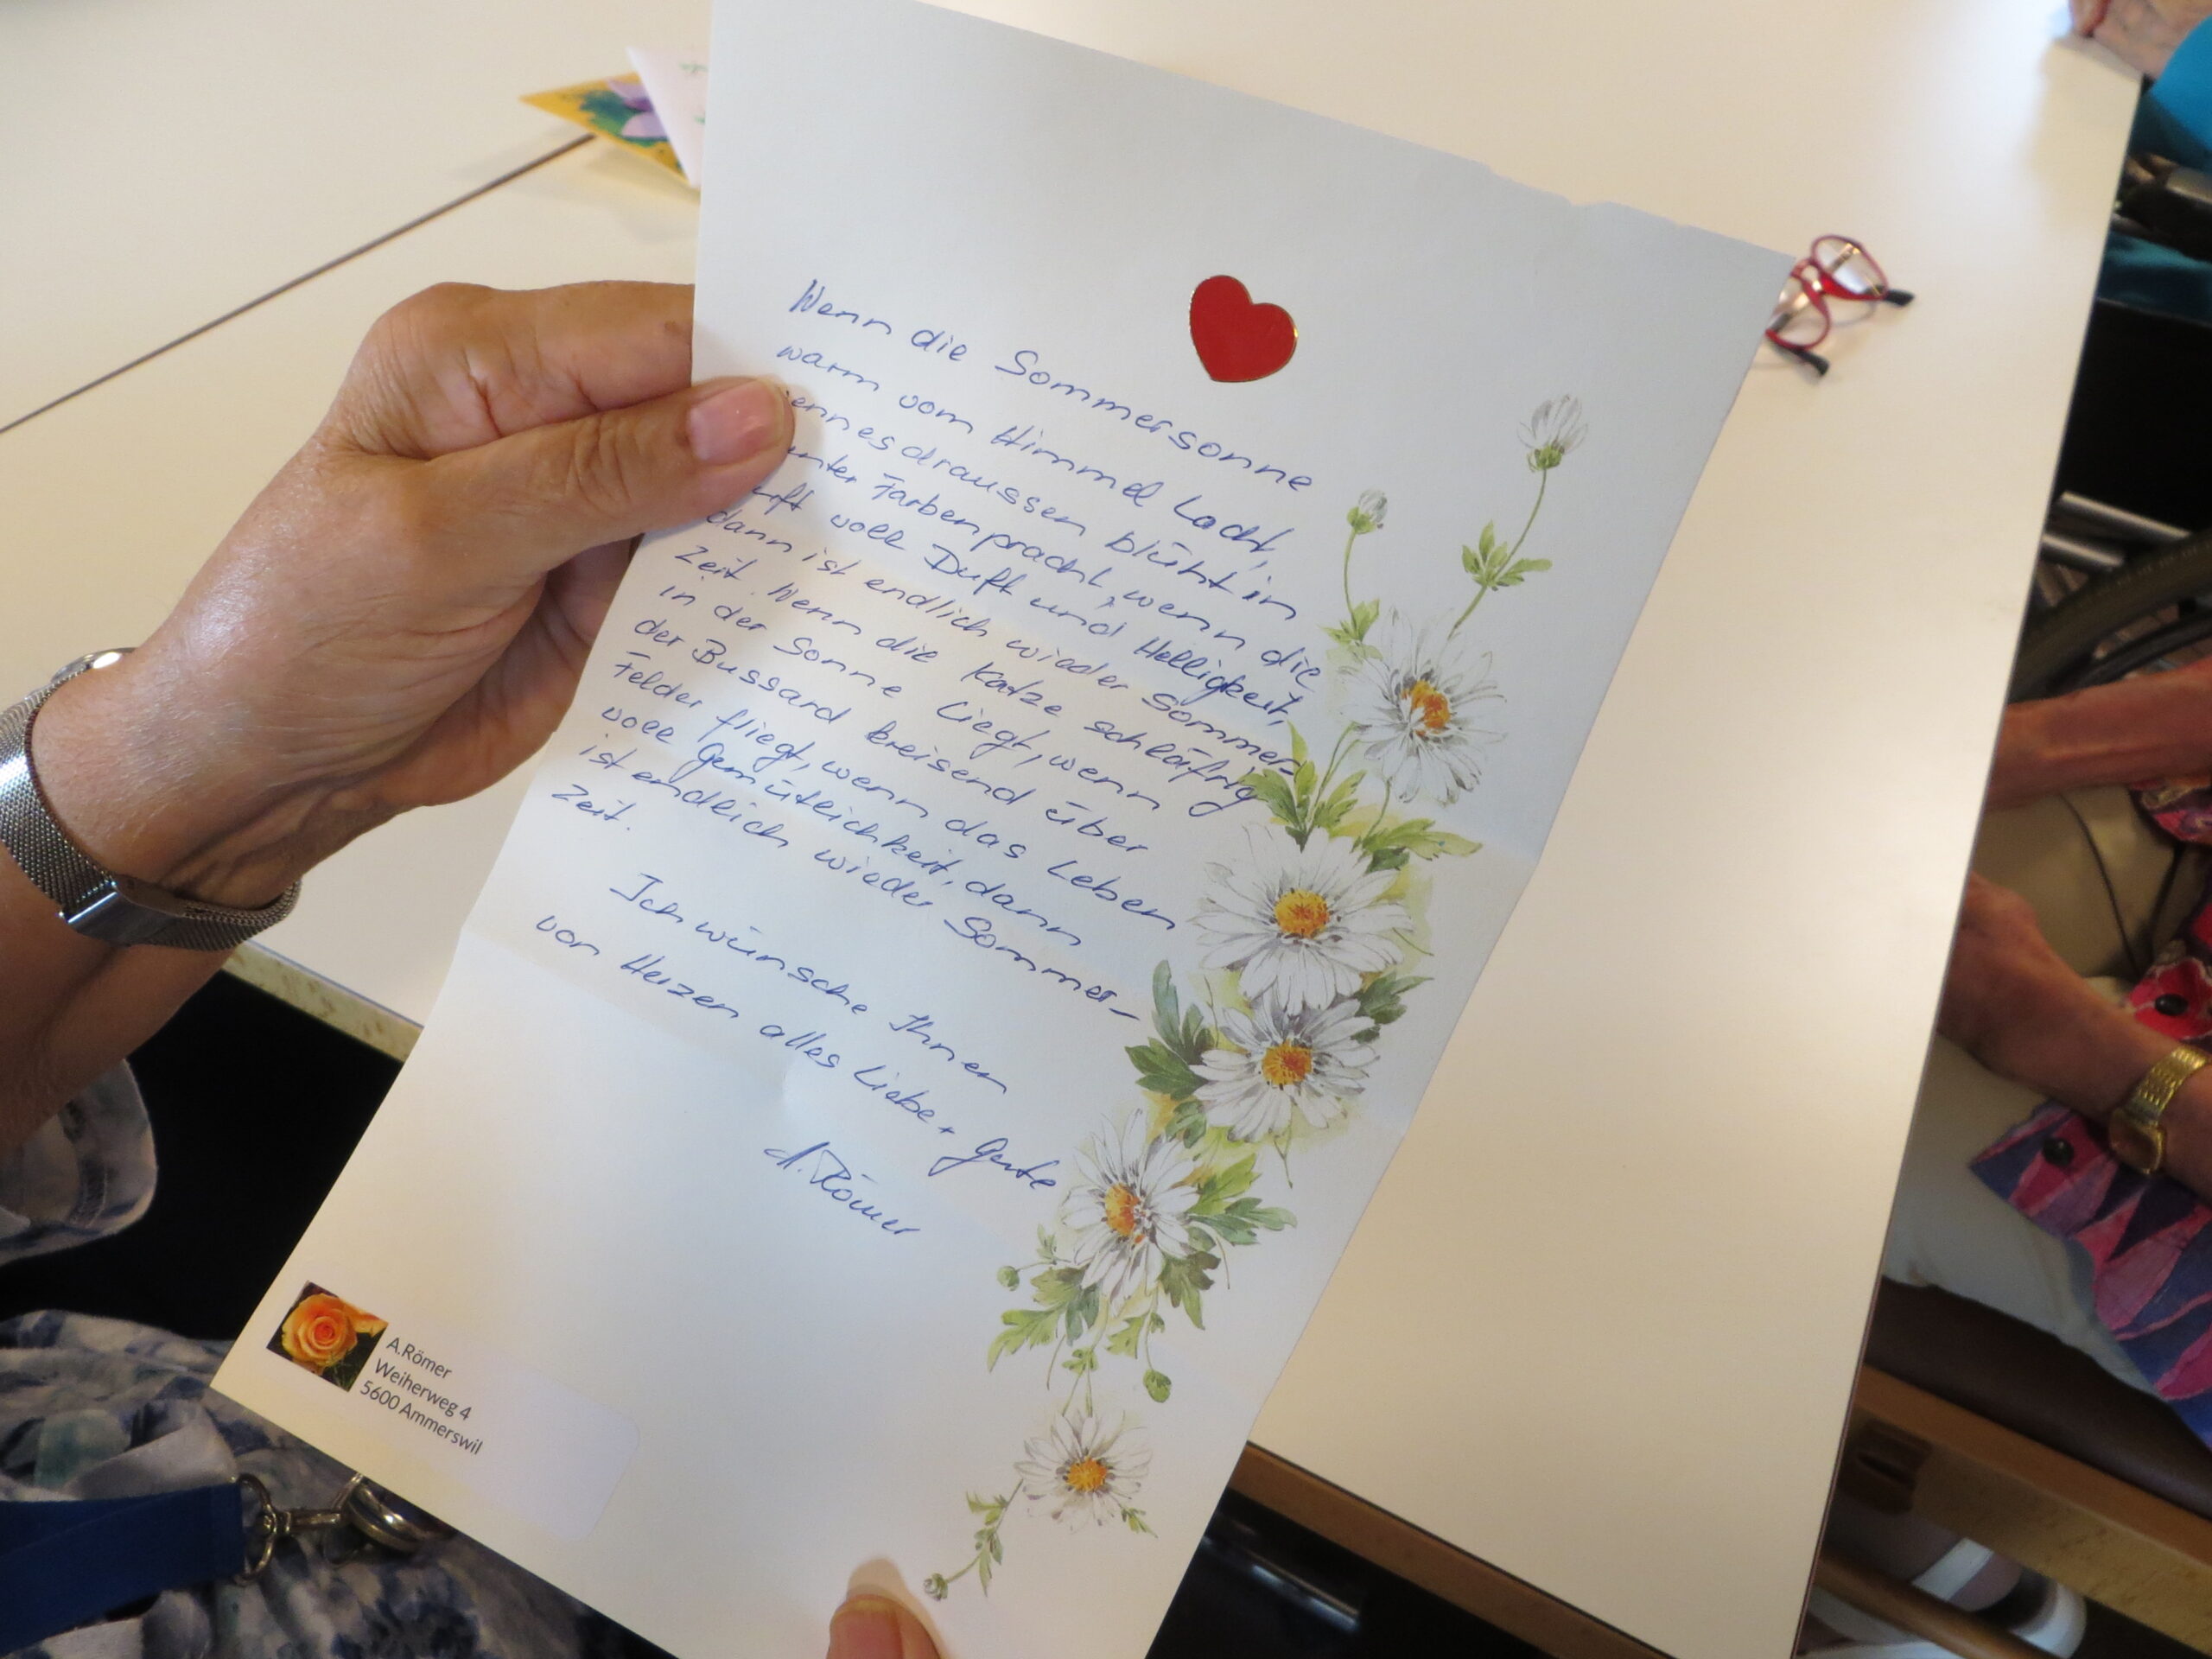 Wenn die Sommersonne
warm vom Himmel Lacht,
enn es draussen blüht in
unter Farbenpracht, wenn die
uft voll Duft und Helligkeit,
dann ist endlich wieder Sommer-
Zeit. Wenn die Katze schläfrig
in der Sonne Liegt, wenn
der Bussard kreisend über
Felder fliegt, wenn das Leben
voll Gemütlichkeit, dann
ist endlich wieder Sommer-
Zeit.
Ich wünsche Ihnen
von Herzen alles Liebe + Gute
A. Römer
A.Römer
Weiherweg 4
5600 Ammerswil